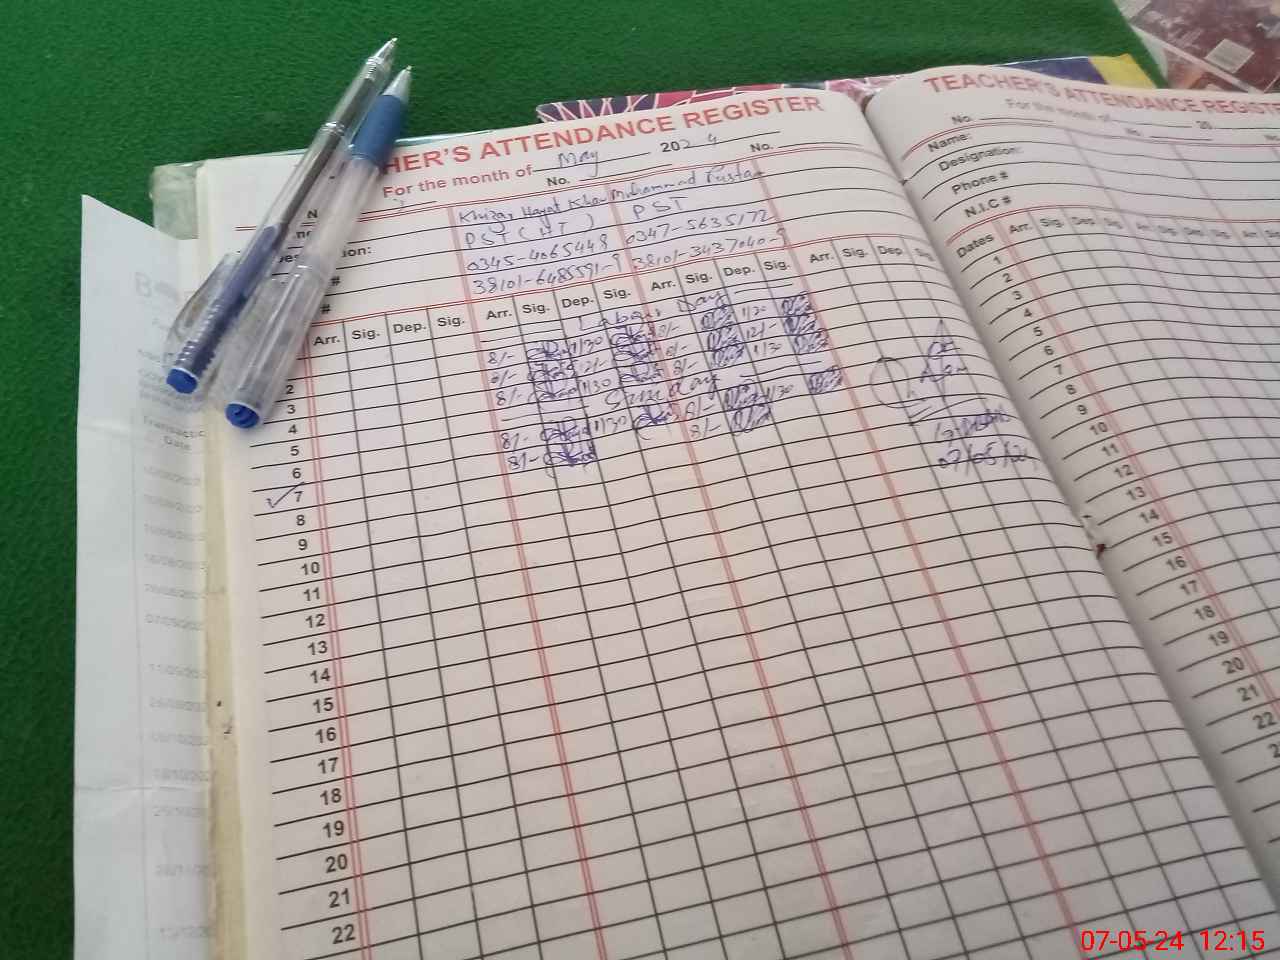 HER'S ATTENDANCE REGISTER
For the month of May 2024
No. No.
Khizar Hayat Khan Muhammad Rustam
PST (HT) PST
0345-4065448 0347-5635172
38101-6485591-9 38101-3437040-9
Arr. Sig. Dep. Sig. Arr. Sig. Dep. Sig. Arr. Sig. Dep. Sig. Arr. Sig. Dep. Sig.
Labour Day
2 8/- 1/30 8/- 1/30
3 8/- 12/- 8/- 12/-
4 8/- 1/30 8/- 1/30
5 Sunday
6 8/- 1/30 8/- 1/30
7 8/- 8/-
07/05/24
8
9
10
11
12
13
14
15
16
17
18
19
20
21
22
TEACHER'S ATTENDANCE REGISTE
For the month of 20
No. No.
Name:
Designation:
Phone #
N.I.C #
Dates Arr. Sig. Dep. Sig. Arr. Sig. Dep. Sig. Arr. Sig.
1
2
3
4
5
6
7
8
9
10
11
12
13
14
15
16
17
18
19
20
21
22
07-05-24 12:15